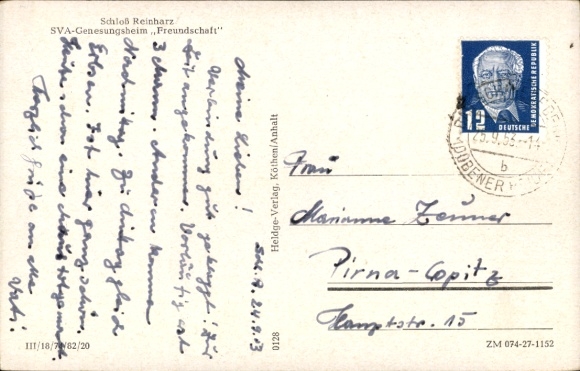 Schloß Reinharz
SVA-Genesungsheim „Freundschaft"
Meine Lieben!
Sch. R. 24.9.53
Verbindung gut geklappt! Zur
Zeit angekommen. Vorläufig erst
3 Mann. Anderen kommen
Nachmittag. Zu Mittag gleich
Erbsen. Ist hier ganz schön.
Habe schon eine
Herzliche Grüße an alle
Vati.
III/18/7 W82/20
Heldge-Verlag, Köthen/Anhalt
0128
DEUTSCHE
DEMOKRATISCHE REPUBLIK
12
25.9.53
b
DÜBENER
Frau
Marianne Zenner
Pirna-Copitz
Hauptstr. 15
ZM 074-27-1152